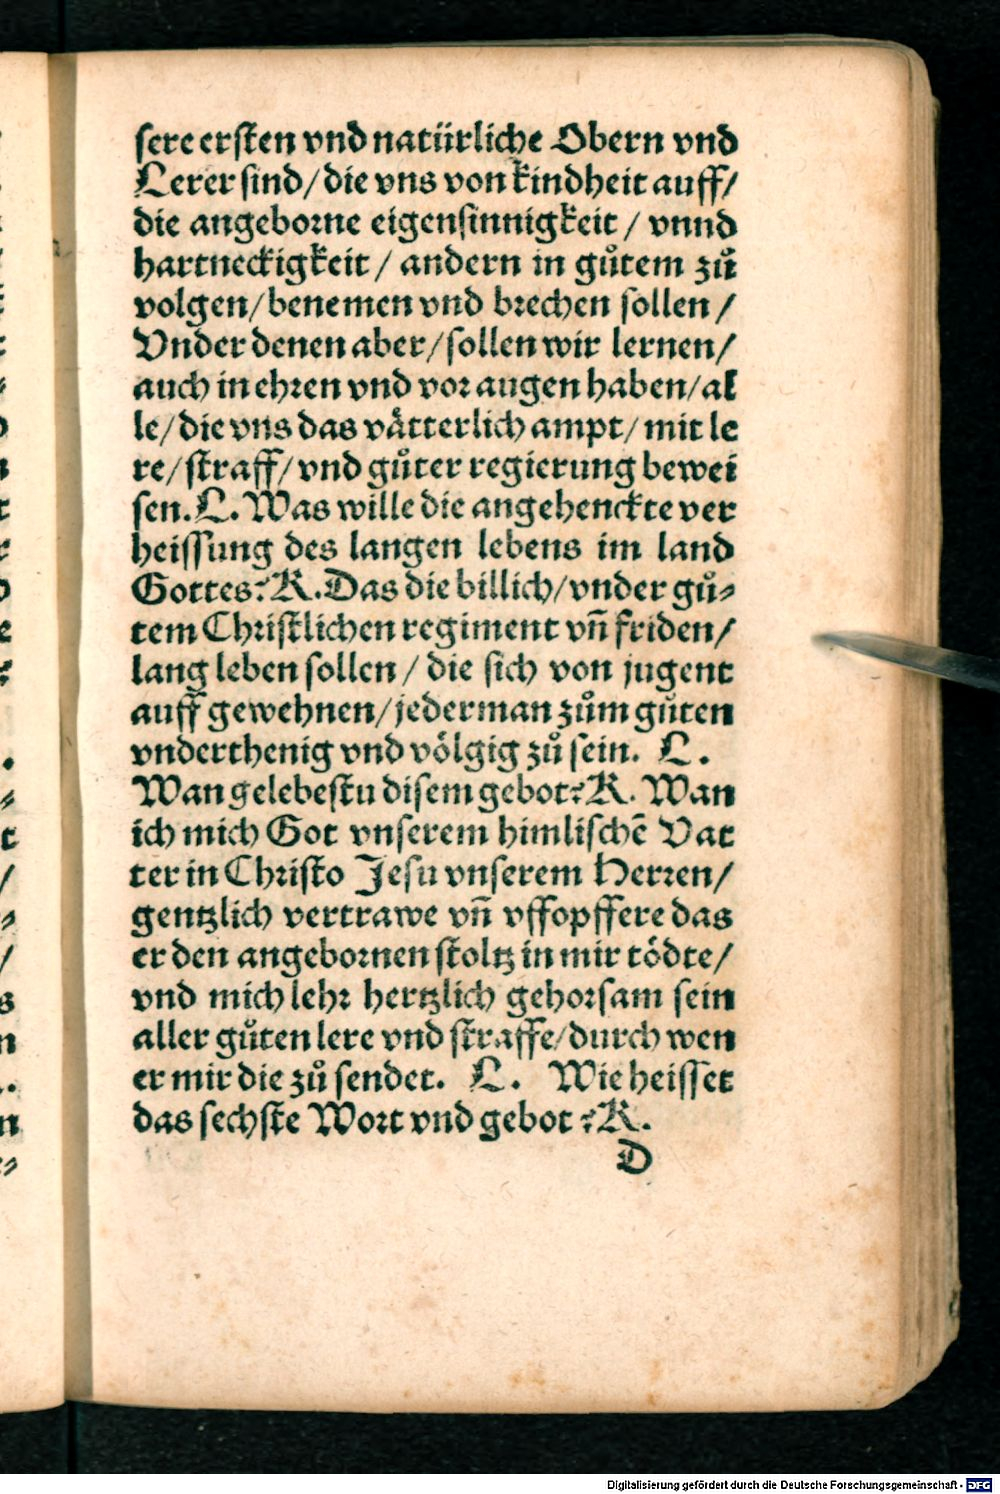 sere ersten vnd natürliche Obern vnd
Lerer sind/die vns von kindheit auff/
die angeborne eigensinnigkeit / vnnd
hartneckigkeit / andern in gůtem zů
volgen/benemen vnd brechen sollen /
Vnder denen aber/sollen wir lernen/
auch in ehren vnd vor augen haben/al
le/die vns das vätterlich ampt/mit le
re/straff/vnd gůter regierung bewei
sen. L. Was wille die angehenckte ver
heissung des langen lebens im land
Gottes? K. Das die billich/vnder gů⸗
tem Christlichen regiment vñ friden/
lang leben sollen / die sich von jugent
auff gewehnen/jederman zům gůten
vnderthenig vnd völgig zů sein. L.
Wan gelebestu disem gebot? K. Wan
ich mich Got vnserem himlischē Vat
ter in Christo Jesu vnserem Herren/
gentzlich vertrawe vñ vffopffere das
er den angebornen stoltz in mir tödte/
vnd mich lehr hertzlich gehorsam sein
aller gůten lere vnd straffe/durch wen
er mir die zů sendet. L. Wie heisset
das sechste Wort vnd gebot ? K.
D
Digitalisierung gefördert durch die Deutsche Forschungsgemeinschaft - DFG